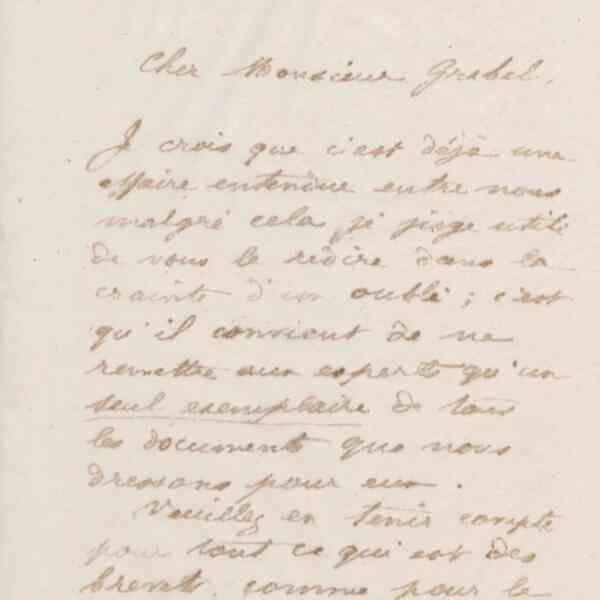 Cher Monsieur Grebel,
Je crois que c'est déjà une
affaire entendue entre nous
malgré cela je juge utile
de vous le redire dans la
crainte d'un oubli ; c'est
qu'il convient de ne
remettre aux experts qu'un
seul exemplaire de tous
les document que nous
dressons pour eux.
Veuillez en tenir compte
pour tout ce qui est des
brevets, comme pour le